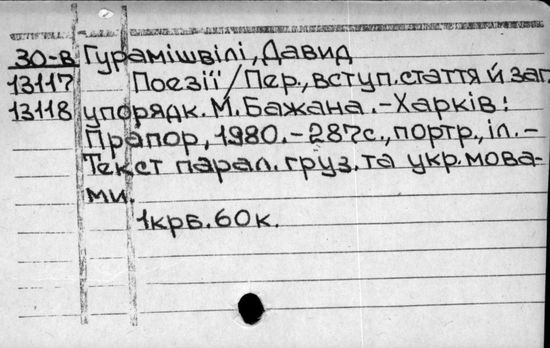 30-в Гурамішвілі, Давид
13117 Поезії / Пер., вступ. стаття й заг.
13118 упорядк. М. Бажана. – Харків:
Прапор, 1980. – 287с., портр., іл. –
Текст парал. груз. та укр. мова-
ми.
1крб. 60к.